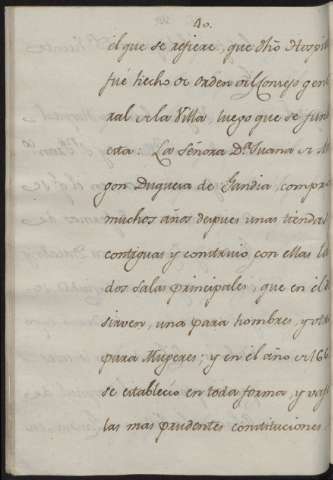 40.
el que se refiere, que dho Hospi
fué hecho de orden del Consejo gene
ral de la Villa, luego que se fun
esta: La Señora Dª Juana de A
gon Duquesa de Gandia, compr
muchos años depues unas tienda
contiguas y construio con ellas la
dos Salas principales, que en el
sirven, una para hombres, y ot
para Mugeres; y en el año de 166
se estableció en toda forma, y va
las mas prudentes constituciones